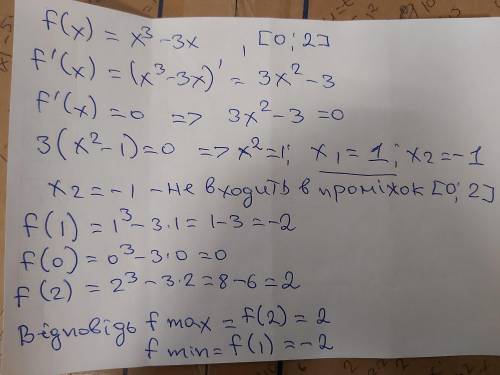 f(x) = x³ - 3x , [0; 2]
f'(x) = (x³ - 3x)' = 3x² - 3
f'(x) = 0 => 3x² - 3 = 0
3(x² - 1) = 0 => x² = 1; x₁ = 1; x₂ = -1
x₂ = -1 - не входить в проміжок [0; 2]
f(1) = 1³ - 3·1 = 1 - 3 = -2
f(0) = 0³ - 3·0 = 0
f(2) = 2³ - 3·2 = 8 - 6 = 2
Відповідь f max = f(2) = 2
f min = f(1) = -2